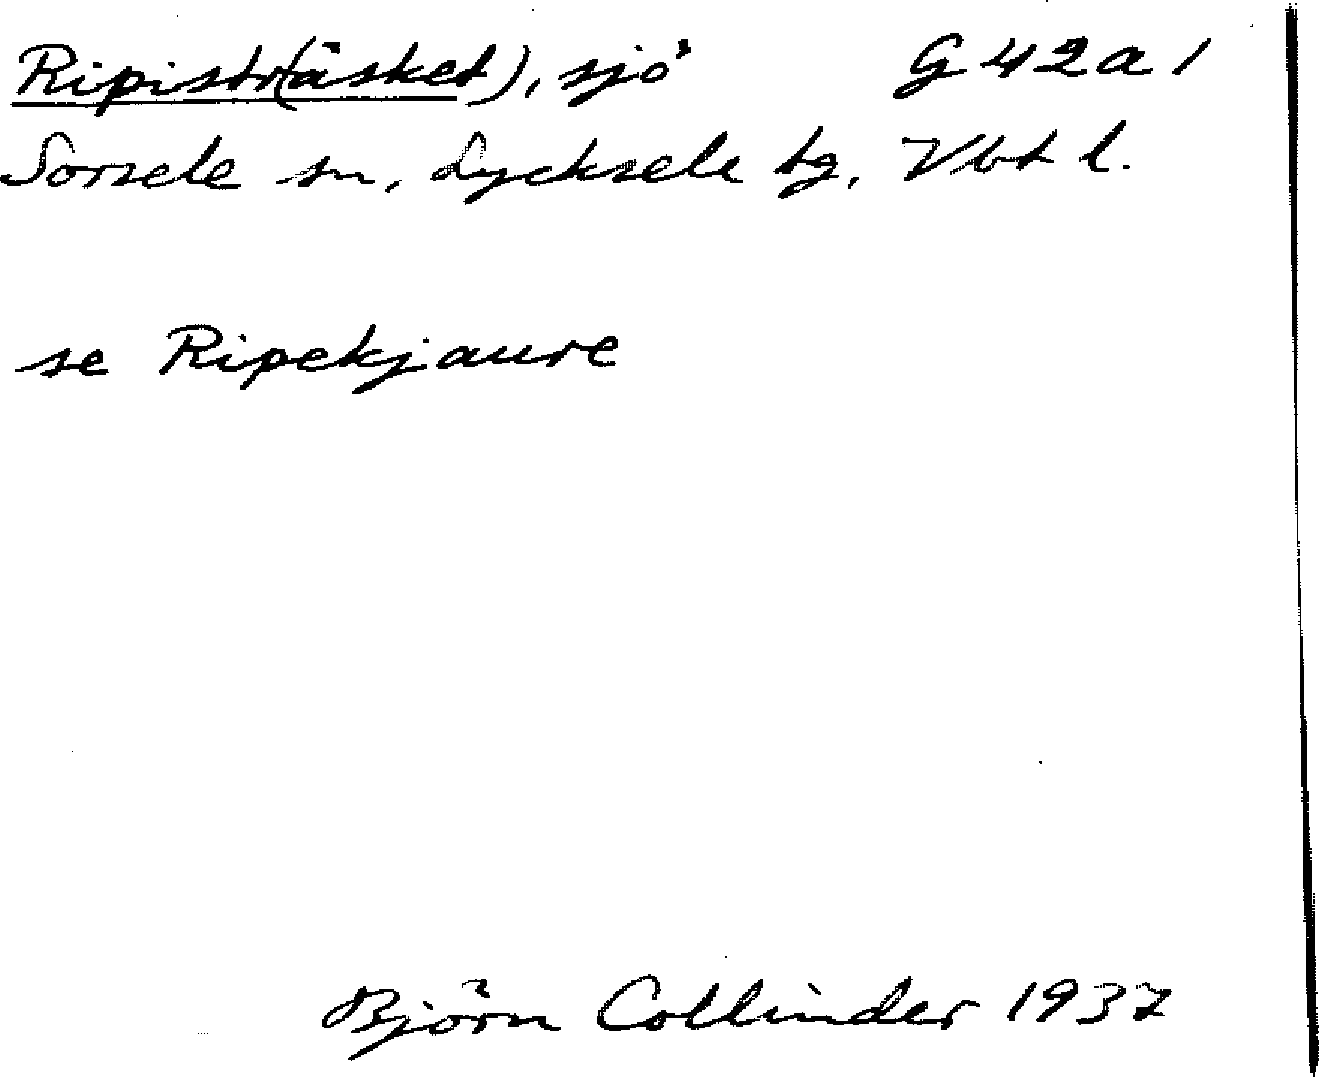 Ripistr(äsket), sjö G 42 a 1
Sorsele sn, Lycksele tg, Vbt l.
se Ripekjaure
Björn Collinder 1937